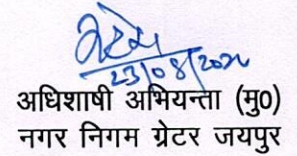 23/08/2024
अधिशाषी अभियन्ता (मु0)
नगर निगम ग्रेटर जयपुर